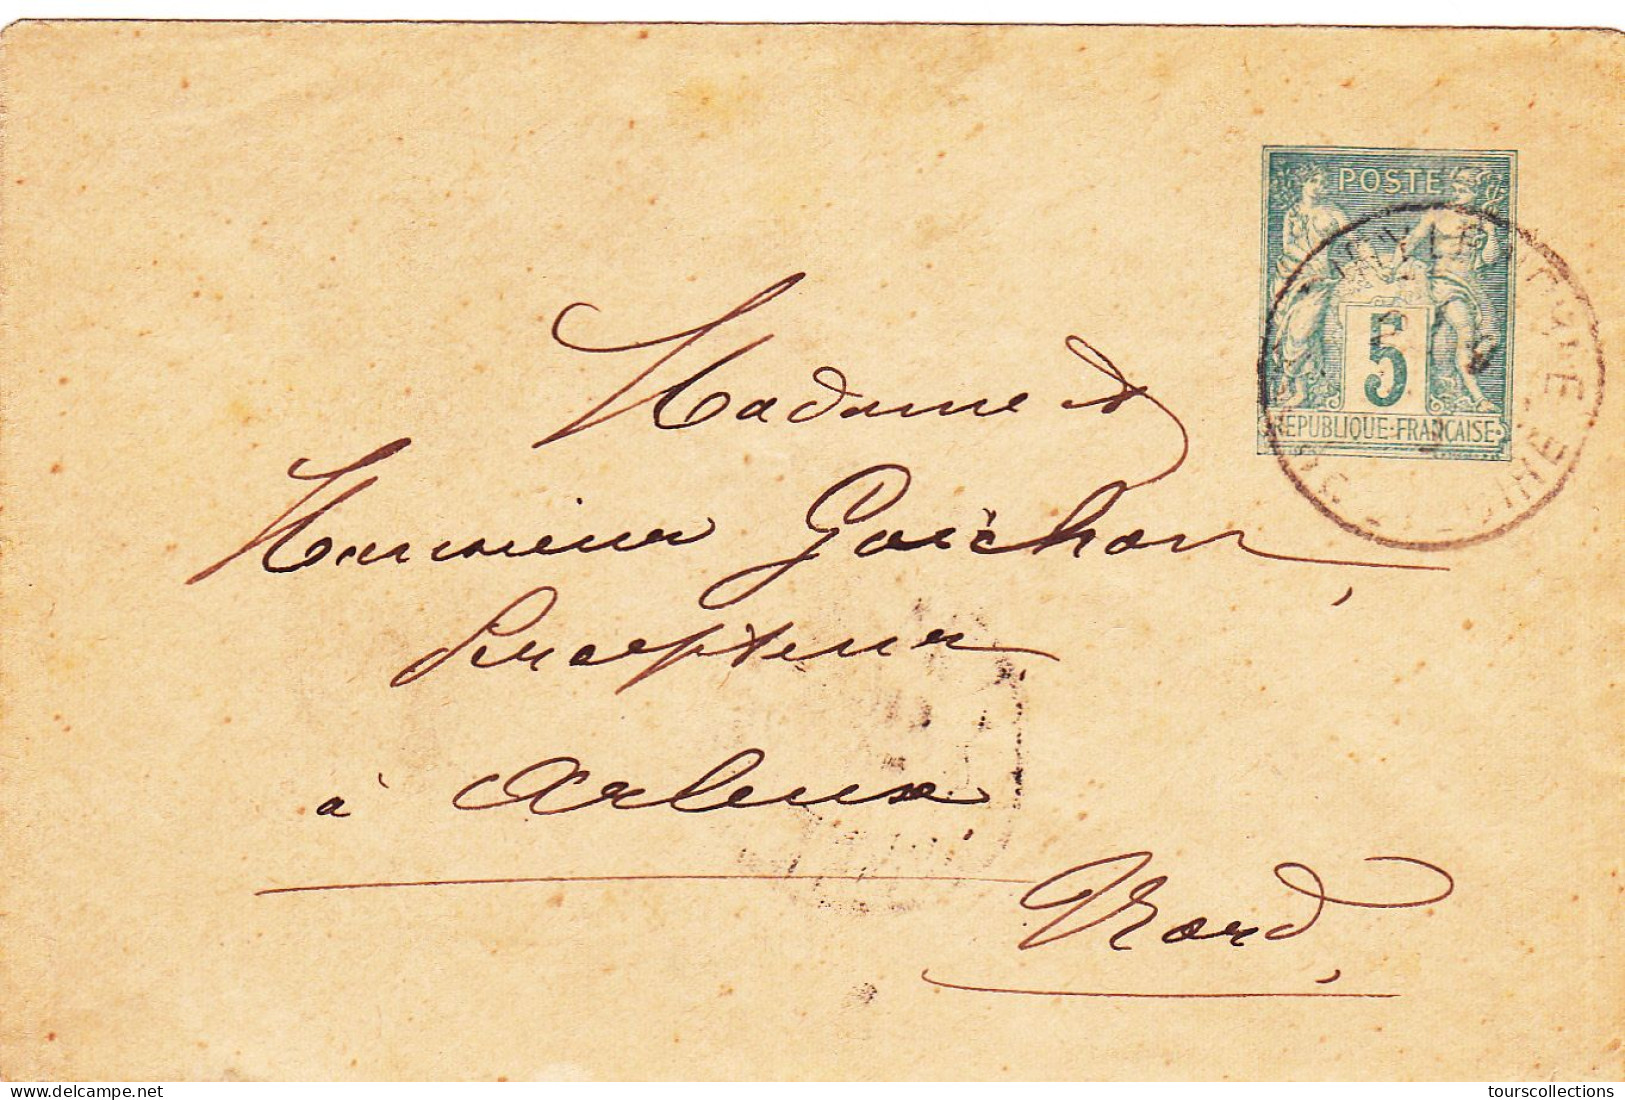 POSTE
5
REPUBLIQUE·FRANÇAISE
Madame &
Monsieur Goïchon,
Percepteur
à Arleux,
Nord,
delcampe.net
tourscollections